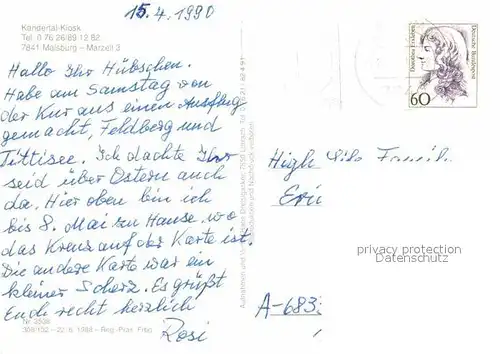 15.4.1990
Kandertal-Kiosk
Tel. 0 76 26/89 12 82
7841 Malsburg - Marzell 3
Hallo Ihr Hübschen.
Habe am Samstag von
der Kur aus einen Ausflug
gemacht, Feldberg und
Tittisee. Ich dachte Ihr
seid über Ostern auch
da. Hier oben bin ich
bis 8. Mai zu Hause, wo
das Kreuz auf der Karte ist.
Die andere Karte war ein
kleiner Scherz. Es grüßt
Euch recht herzlich
Rosi
Dorothea Erxleben
Deutsche Bundespost
60
High
A-683
privacy protection
Datenschutz